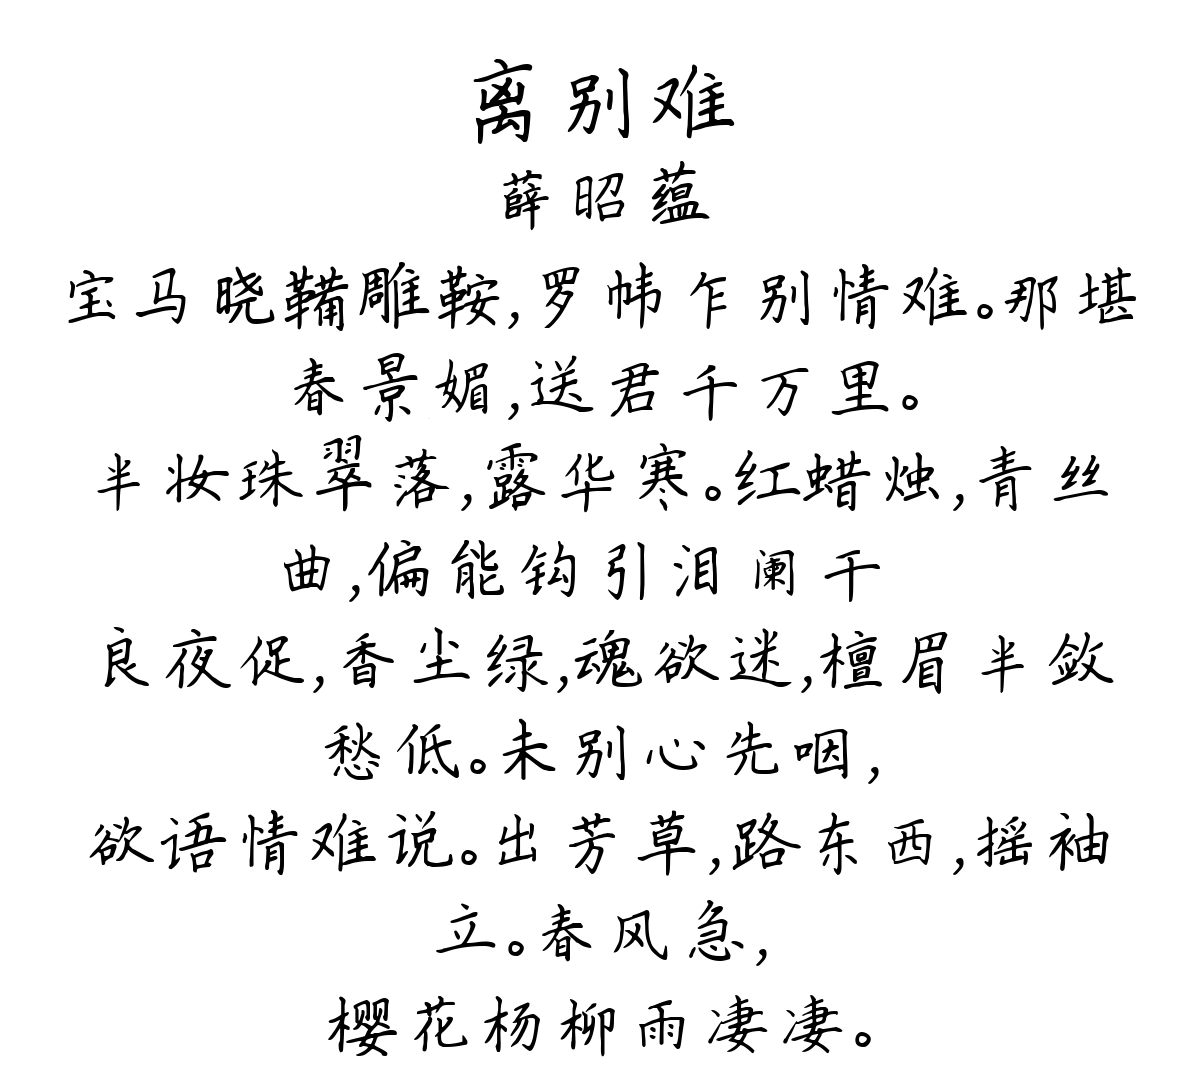 离别难
薛昭蕴
宝马晓鞴雕鞍,罗帏乍别情难。那堪
春景媚,送君千万里。
半妆珠翠落,露华寒。红蜡烛,青丝
曲,偏能钩引泪阑干
良夜促,香尘绿,魂欲迷,檀眉半敛
愁低。未别心先咽,
欲语情难说。出芳草,路东西,摇袖
立。春风急,
樱花杨柳雨凄凄。